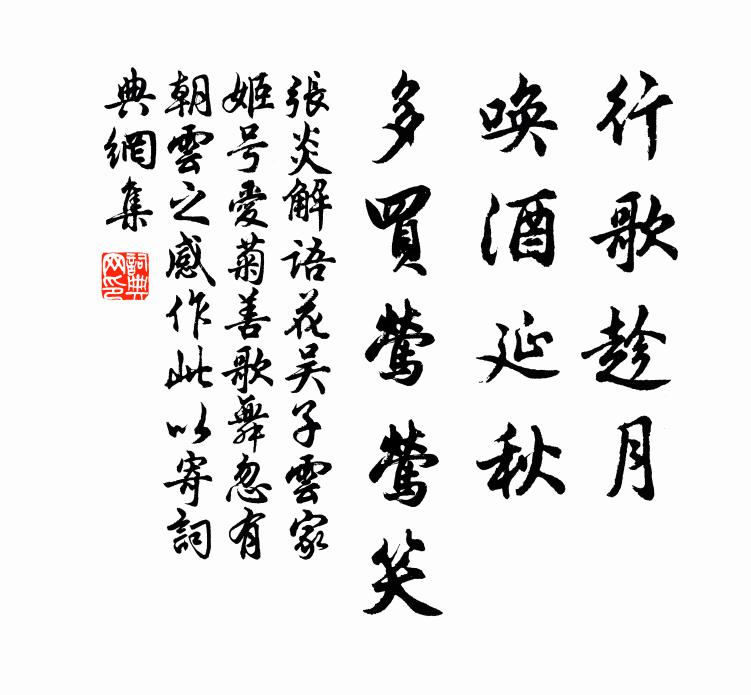 行歌趁月
喚酒延秋
多買鶯鶯笑
張炎解語花吴子雲家
姬号愛菊善歌舞忽有
朝雲之感作此以寄詞
典網集
詞典
网印